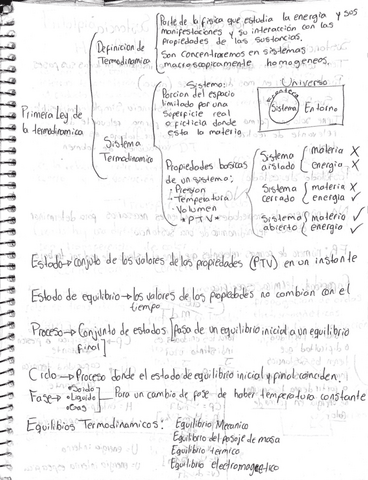 Parte de la fisica que estudia la energía y sus
manifestaciones y su interacción con las
propiedades de las sustancias.
Son concentraremos en sistemas
macroscopicamente homogeneos.
Definicion de
Termodinamica
Primera Ley de
la termodinamica
Sistema
Termodinamico
Sistema:
Porcion del espacio
limitado por una
superficie real
o ficticia donde
esta la materia
Universo
Sistema
Entorno
Propiedades basicas
de un sistema:
Presion
Temperatura
Volumen
*PTV*
Sistema aislado
materia X
energia X
Sistema cerrado
materia X
energia ✓
Sistema abierto
materia ✓
energia ✓
Estado→conjuto de los valores de las propiedades (PTV) en un instante
Estado de equilibrio→los valores de las propiedades no cambian con el
tiempo
Proceso→Conjunto de estados [pasa de un equilibrio inicial a un equilibrio
final]
Ciclo→Proceso donde el estado de equilibrio inicial y final coinciden
Fase→
•Solido
•Liquido
•Gas
Para un cambio de fase de haber temperatura constante
Equilibrios Termodinamicos:
Equilibrio Mecanico
Equilibrio del pasaje de masa
Equilibrio termico
Equilibrio electromagnetico